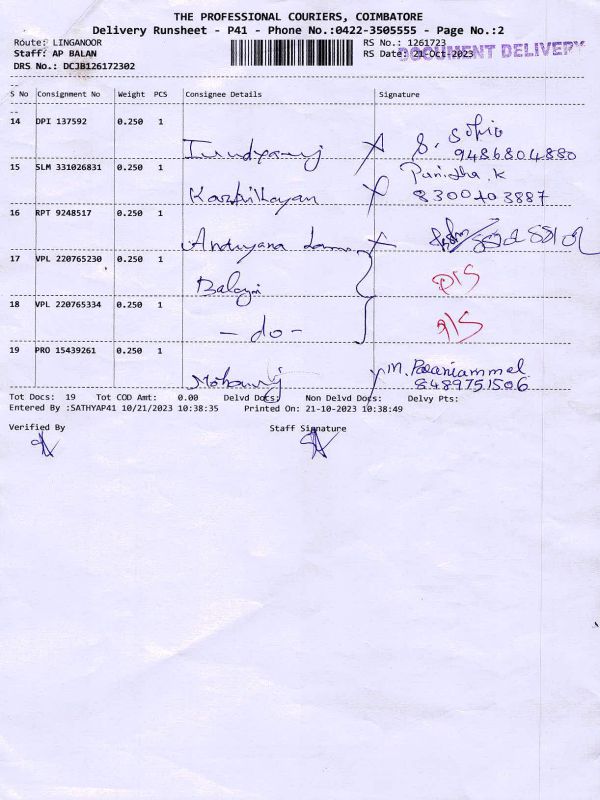 THE PROFESSIONAL COURIERS, COIMBATORE
Delivery Runsheet - P41 - Phone No.:0422-3505555 - Page No.:2
Route: LINGANOOR
RS No.: 1261723
Staff: AP BALAN
RS Date: 21-Oct-2023
DOCUMENT DELIVERY
DRS No.: DCJB126172302
S No Consignment No Weight PCS Consignee Details Signature
14 DPI 137592 0.250 1
S. Sofia
9486804880
15 SLM 331026831 0.250 1
Punidha.K
Karthikayan 8300403887
16 RPT 9248517 0.250 1
17 VPL 220765230 0.250 1
Balaji
18 VPL 220765334 0.250 1
- do -
19 PRO 15439261 0.250 1
M. Palaniammal
Mohanraj 8489751506
Tot Docs: 19 Tot COD Amt: 0.00 Delvd Docs: Non Delvd Docs: Delvy Pts:
Entered By :SATHYAP41 10/21/2023 10:38:35 Printed On: 21-10-2023 10:38:49
Verified By Staff Signature